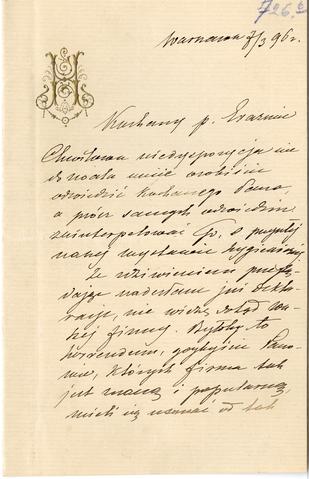 726.
H
Warszawa 8/3 96 r.
Kochany p. Erazmie
Chwilowa niedyspozycja nie
dozwala mnie osobiście
odwiedzić Kochanego Pana,
a prócz samych odwiedzin
zainterpelować Go, o przyszłej
naszej wystawie hygienicznej.
Ze zdziwieniem przeglą-
dając nadesłane już dekla-
racje, nie widzę dotąd wa-
szej firmy. Byłoby to
horrendum, gdybyście Pano-
wie, których firma tak
jest znaną i popularną,
mieli się usunąć od tak